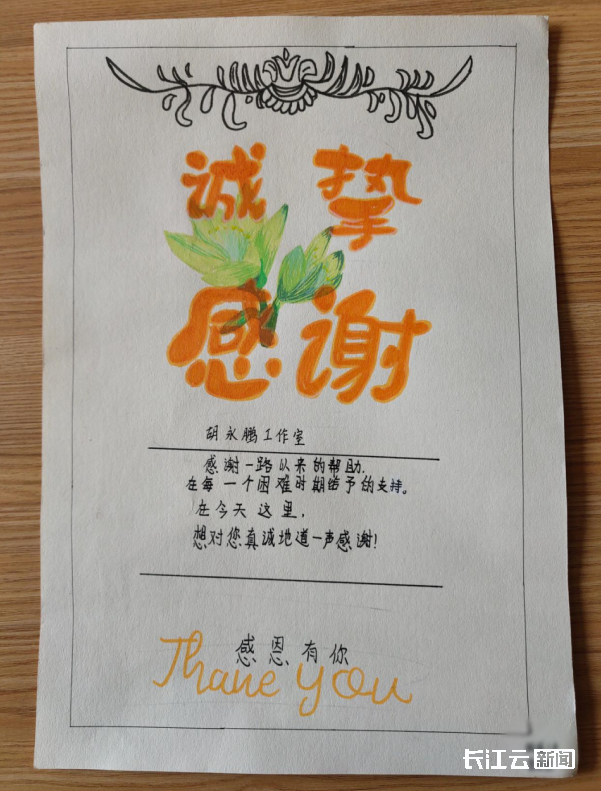 诚挚
感谢
胡永鹏工作室
感谢一路以来的帮助.
在每一个困难时期给予的支持。
在今天这里,
想对您真诚地道一声感谢!
感恩有你
Thane you
长江云新闻